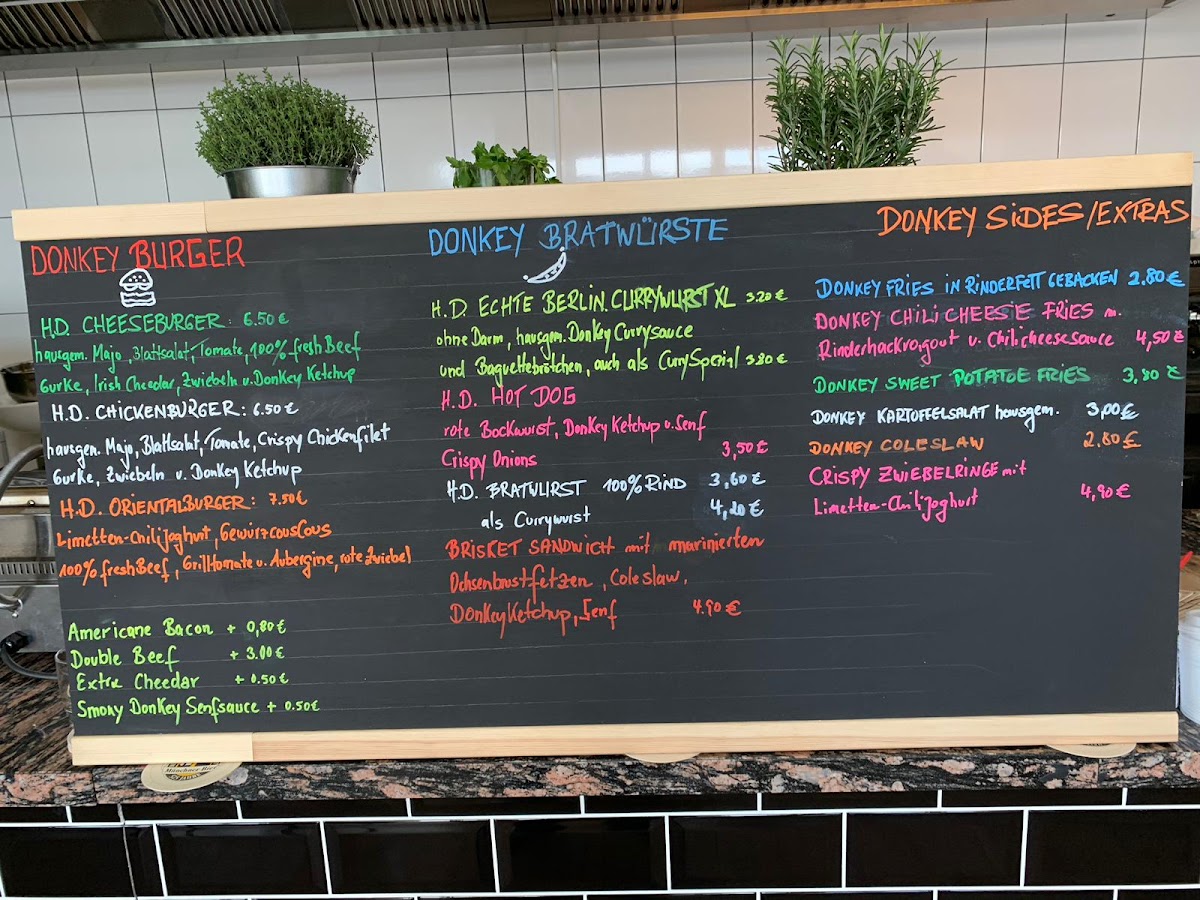 DONKEY BURGER
H.D. CHEESEBURGER: 6.50 €
hausgem. Majo, Blattsalat, Tomate, 100% fresh Beef
Gurke, Irish Cheedar, Zwiebeln u. Donkey Ketchup
H.D. CHICKENBURGER: 6.50 €
hausgem. Majo, Blattsalat, Tomate, Crispy Chickenfilet
Gurke, Zwiebeln u. Donkey Ketchup
H.D. ORIENTALBURGER: 7.50 €
Limetten-Chilijoghurt, Gewürzcouscous
100% fresh Beef, Grilltomate u. Aubergine, rote Zwiebel
Americane Bacon + 0,80 €
Double Beef + 3.00 €
Extra Cheedar + 0.50 €
Smoky Donkey Senfsauce + 0.50 €
DONKEY BRATWÜRSTE
H.D. ECHTE BERLIN. CURRYWURST XL 3.20 €
ohne Darm, hausgem. Donkey Currysauce
und Baguettebrötchen, auch als CurrySpezial 3.80 €
H.D. HOT DOG
rote Bockwurst, Donkey Ketchup u. Senf
Crispy Onions 3,50 €
H.D. BRATWURST 100% RIND 3,60 €
als Currywurst 4,20 €
BRISKET SANDWICH mit marinierten
Ochsenbrustfetzen, Coleslaw,
Donkey Ketchup, Senf 4.90 €
DONKEY SIDES/EXTRAS
DONKEY FRIES IN RINDERFETT GEBACKEN 2.80 €
DONKEY CHILI CHEESIE FRIES m.
Rinderhackragout u. Chilicheesesauce 4,50 €
DONKEY SWEET POTATOE FRIES 3,80 €
DONKEY KARTOFFELSALAT hausgem. 3,00 €
DONKEY COLESLAW 2.80 €
CRISPY ZWIEBELRINGE mit
Limetten-Chilijoghurt 4,90 €
Münchner Bier